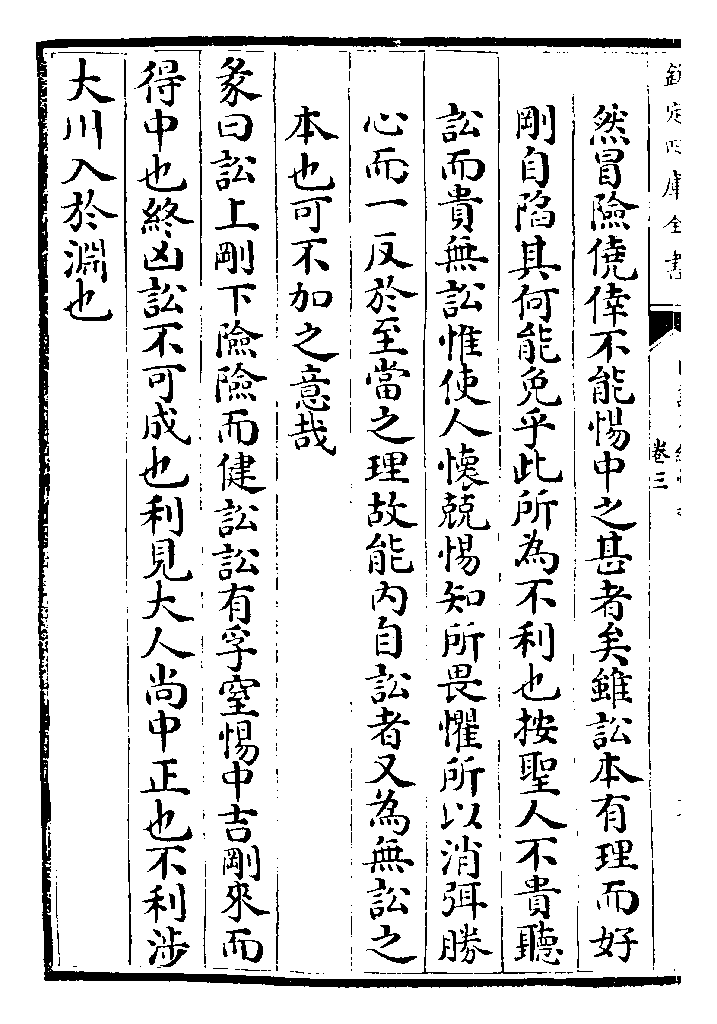 欽定四庫全書
卷三
然冒險僥倖不能惕中之甚者矣雖訟本有理而好
剛自陷其何能免乎此所為不利也按聖人不貴聽
訟而貴無訟惟使人懷兢惕知所畏懼所以消弭勝
心而一反於至當之理故能內自訟者又為無訟之
本也可不加之意哉
彖曰訟上剛下險險而健訟訟有孚窒惕中吉剛來而
得中也終凶訟不可成也利見大人尚中正也不利涉
大川入於淵也